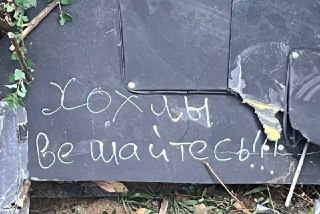 хохлы
вешайтесь!!